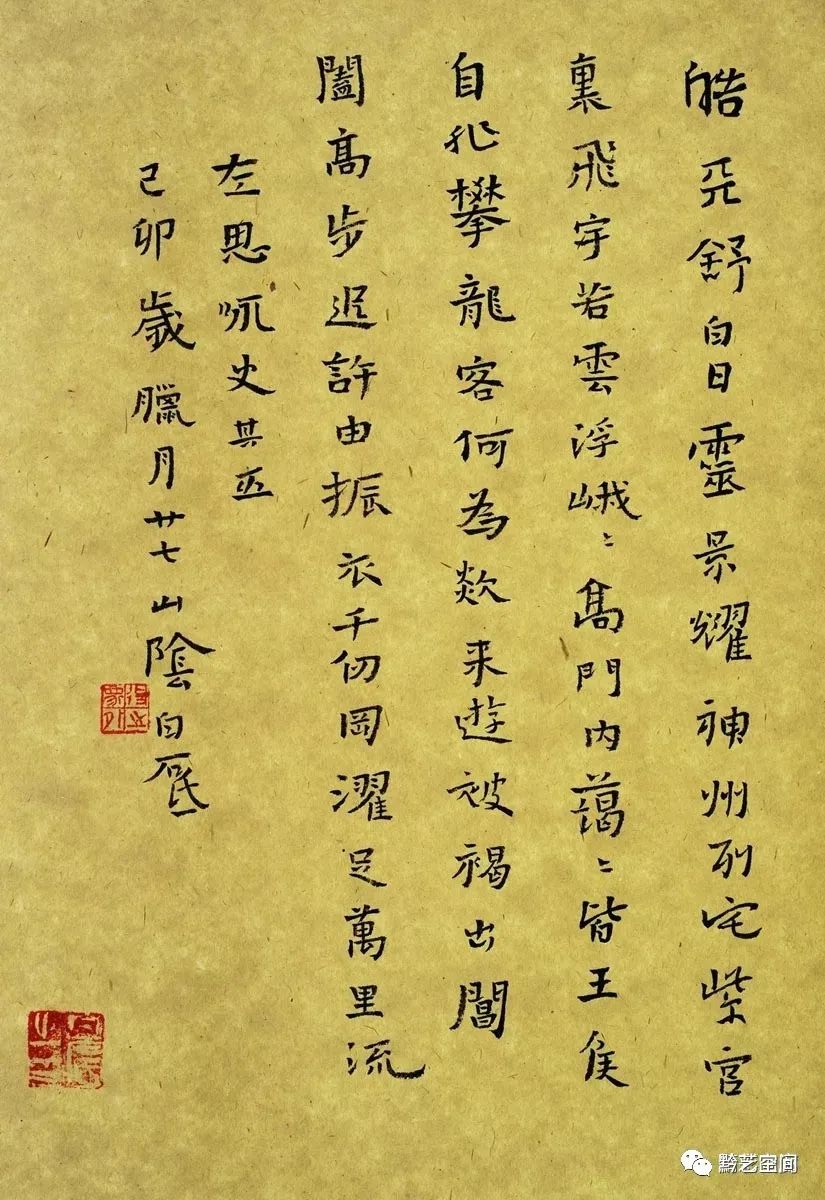 皓天舒白日靈景耀神州列宅紫宮
裏飛宇若雲浮峨〻高門內藹〻皆王侯
自非攀龍客何為欻来遊被褐出閶
闔高步追許由振衣千仞岡濯足萬里流
左思咏史其五
己卯歲臘月廿七山陰白砥
黔艺空间